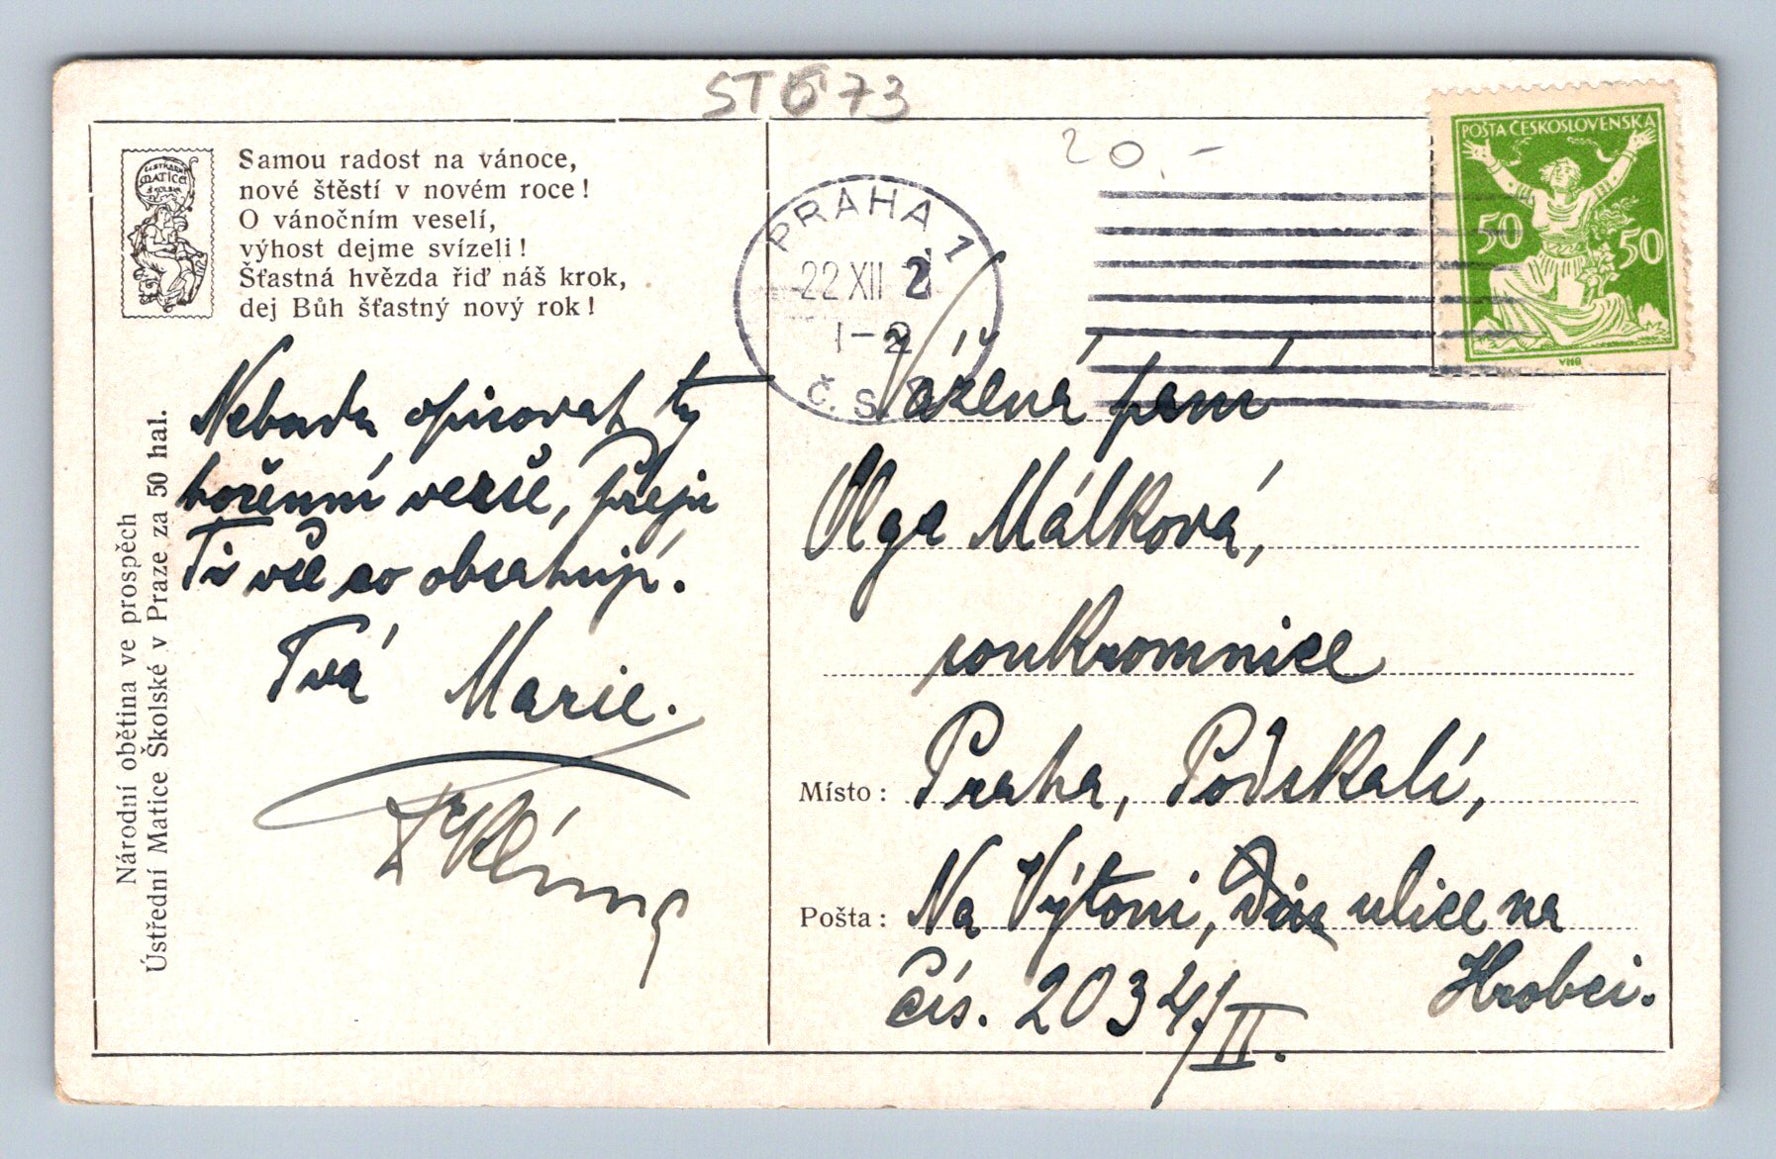 ST 73
20.-
Samou radost na vánoce,
nové štěstí v novém roce!
O vánočním veselí,
výhost dejme svízeli!
Šťastná hvězda řiď náš krok,
dej Bůh šťastný nový rok!
MATICE
Národní obětina ve prospěch
Ústřední Matice Školské v Praze za 50 hal.
Nebudu opisovat ty
hořenní verše, přeju
Ti vše co obsahují.
Tvá Marie.
PRAHA 1
22 XII 2
1-2
Č. S.
POŠTA ČESKOSLOVENSKÁ
50 50
Vážená paní
Olga Málková,
soukromnice
Místo: Praha, Podskalí,
Pošta: Na Výtoni, ulice na
Hrobci.
čís. 2034/II.